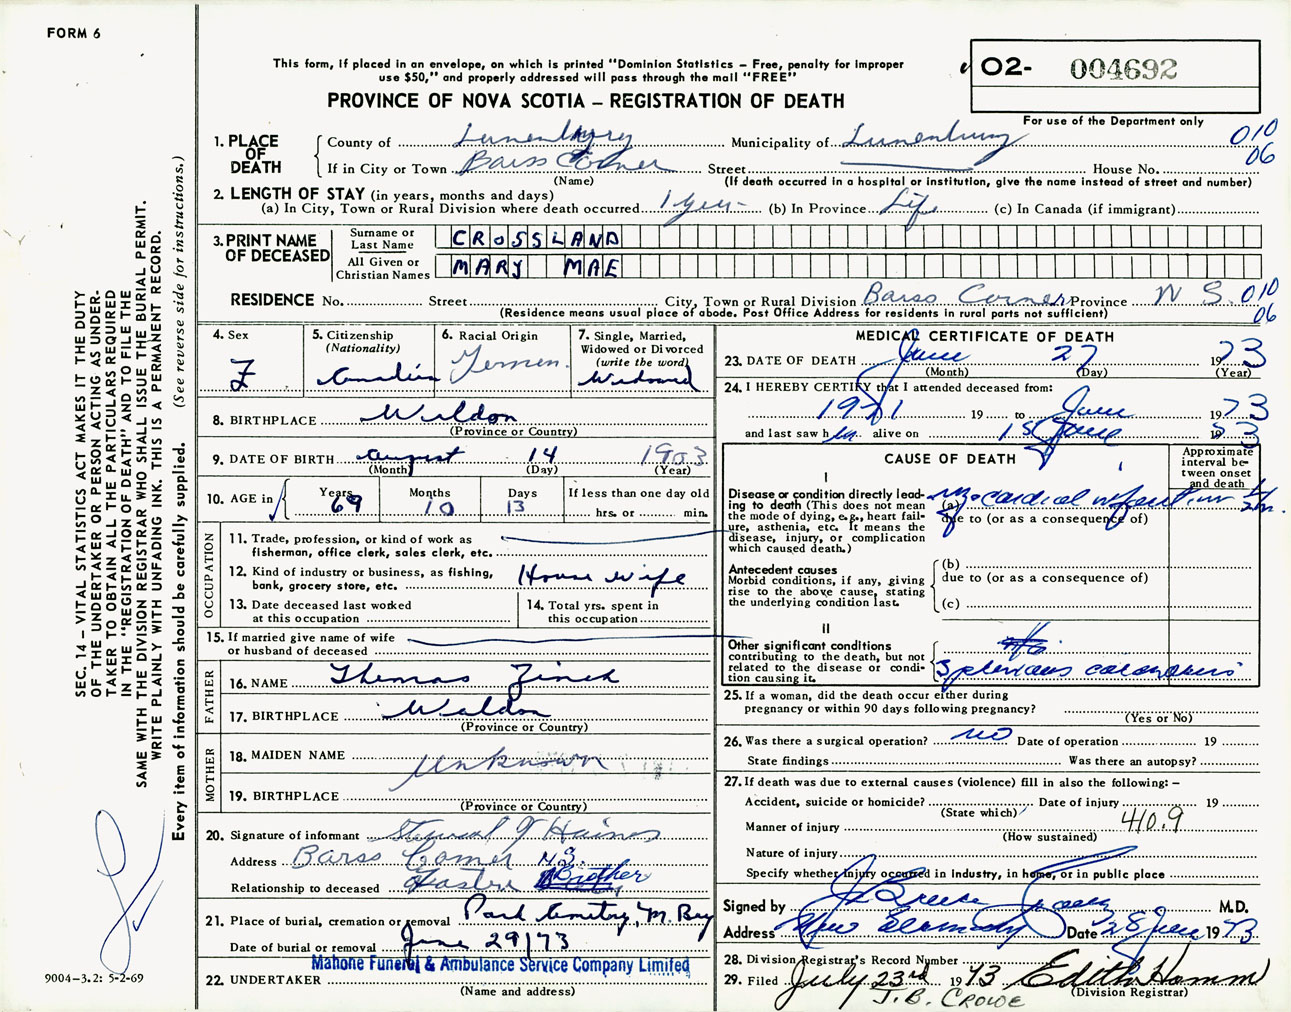 FORM 6
This form, if placed in an envelope, on which is printed "Dominion Statistics – Free, penalty for improper
use $50," and properly addressed will pass through the mail "FREE"
O2- 004692
PROVINCE OF NOVA SCOTIA – REGISTRATION OF DEATH
For use of the Department only
SEC. 14 – VITAL STATISTICS ACT MAKES IT THE DUTY
OF THE UNDERTAKER OR PERSON ACTING AS UNDER-
TAKER TO OBTAIN ALL THE PARTICULARS REQUIRED
IN THE "REGISTRATION OF DEATH" AND TO FILE THE
SAME WITH THE DIVISION REGISTRAR WHO SHALL ISSUE THE BURIAL PERMIT.
WRITE PLAINLY WITH UNFADING INK. THIS IS A PERMANENT RECORD.
Every item of information should be carefully supplied. (See reverse side for instructions.)
9004–3.2: 5-2-69
1. PLACE OF DEATH
County of Lunenburg Municipality of Lunenburg 010
If in City or Town Barss Corner Street House No. 06
(Name) (If death occurred in a hospital or institution, give the name instead of street and number)
2. LENGTH OF STAY (in years, months and days)
(a) In City, Town or Rural Division where death occurred 1 year (b) In Province Life (c) In Canada (if immigrant)
3. PRINT NAME OF DECEASED
Surname or Last Name CROSSLAND
All Given or Christian Names MARY MAE
RESIDENCE No. Street City, Town or Rural Division Barss Corner Province N S. 010
(Residence means usual place of abode. Post Office Address for residents in rural parts not sufficient) 06
4. Sex F
5. Citizenship (Nationality) Canadian
6. Racial Origin German
7. Single, Married, Widowed or Divorced (write the word) Widowed
8. BIRTHPLACE Waldon
(Province or Country)
9. DATE OF BIRTH August 14 1903
(Month) (Day) (Year)
10. AGE in Years 69 Months 10 Days 13 If less than one day old
hrs. or min.
OCCUPATION
11. Trade, profession, or kind of work as
fisherman, office clerk, sales clerk, etc.
12. Kind of industry or business, as fishing,
bank, grocery store, etc. House wife
13. Date deceased last worked
at this occupation
14. Total yrs. spent in
this occupation
15. If married give name of wife
or husband of deceased
FATHER
16. NAME Thomas Zinck
17. BIRTHPLACE Waldon
(Province or Country)
MOTHER
18. MAIDEN NAME Unknown
19. BIRTHPLACE
(Province or Country)
20. Signature of informant Haines
Address Barss Corner N.S.
Relationship to deceased Foster Brother
21. Place of burial, cremation or removal Park Cemetry, M. Bay
Date of burial or removal June 29/73
Mahone Funeral & Ambulance Service Company Limited
22. UNDERTAKER
(Name and address)
MEDICAL CERTIFICATE OF DEATH
23. DATE OF DEATH June 27 1973
(Month) (Day) (Year)
24. I HEREBY CERTIFY that I attended deceased from:
1971 19 to June 1973
and last saw her alive on 15 June 19 73
CAUSE OF DEATH
Approximate interval between onset and death
I
Disease or condition directly lead-
ing to death (This does not mean
the mode of dying, e.g., heart fail-
ure, asthenia, etc. It means the
disease, injury, or complication
which caused death.)
(a) Myocardial infarction
due to (or as a consequence of)
Antecedent causes
Morbid conditions, if any, giving
rise to the above cause, stating
the underlying condition last.
(b)
due to (or as a consequence of)
(c)
II
Other significant conditions
contributing to the death, but not
related to the disease or condi-
tion causing it.
3 previous coronaries
25. If a woman, did the death occur either during
pregnancy or within 90 days following pregnancy?
(Yes or No)
26. Was there a surgical operation? no Date of operation 19
State findings Was there an autopsy?
27. If death was due to external causes (violence) fill in also the following: –
Accident, suicide or homicide? Date of injury 19
(State which)
Manner of injury 410.9
(How sustained)
Nature of injury
Specify whether injury occurred in industry, in home, or in public place
Signed by M.D.
Address New Germany Date 28 June 1973
28. Division Registrar's Record Number
29. Filed July 23rd 1973 Edith Hamm
J.B. CROWE (Division Registrar)